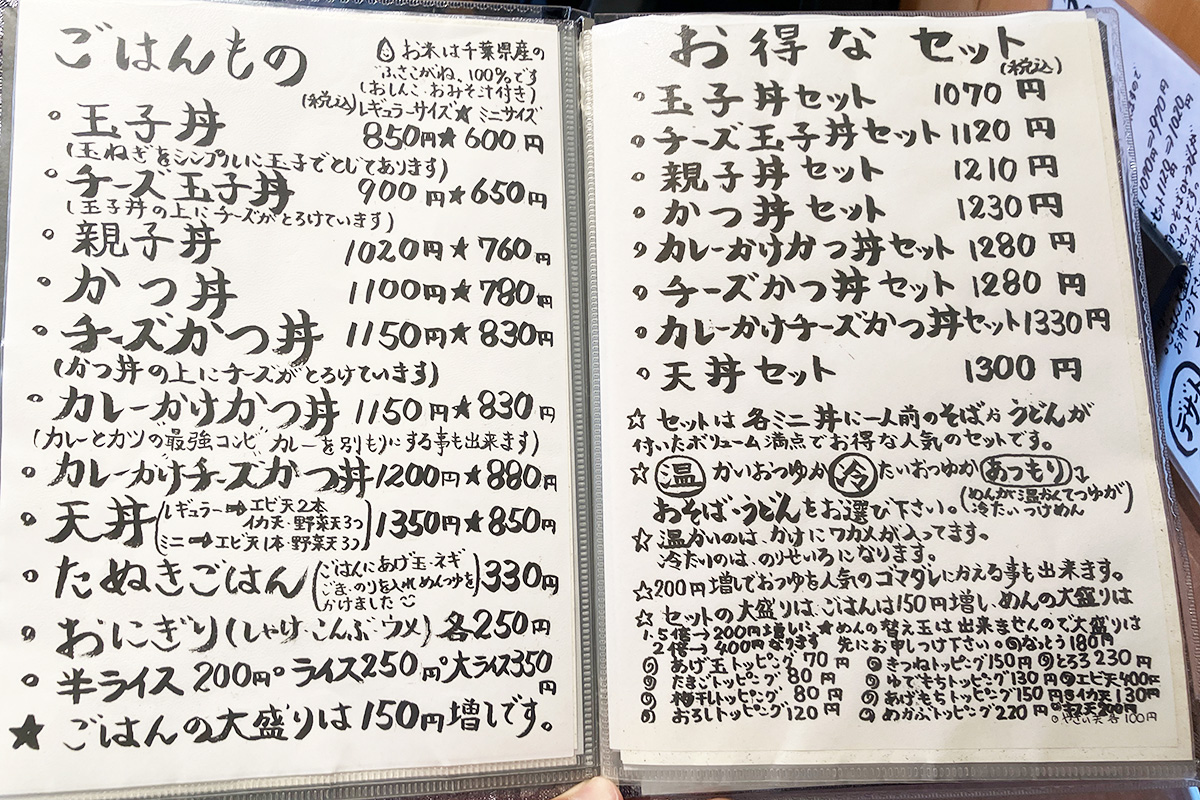 ごはんもの
お米は千葉県産の
ふさこがね、100%です
(おしんこ おみそ汁付き)
(税込) レギュラーサイズ★ミニサイズ
玉子丼 850円★600円
(玉ねぎをシンプルに玉子でとじてあります)
チーズ玉子丼 900円★650円
(玉子丼の上にチーズがとろけています)
親子丼 1020円★760円
かつ丼 1100円★780円
チーズかつ丼 1150円★830円
(かつ丼の上にチーズがとろけています)
カレーかけかつ丼 1150円★830円
(カレーとカツの最強コンビ カレーを別もりにする事も出来ます)
カレーかけチーズかつ丼 1200円★880円
天丼 (レギュラー➡エビ天2本 イカ天・野菜天3つ ミニ➡エビ天1本・野菜天3つ) 1350円★850円
たぬきごはん (ごはんにあげ玉・ネギ ごま・のりを入れめんつゆを かけました) 330円
おにぎり(しゃけ・こんぶ・ウメ) 各250円
半ライス 200円 ライス250円 大ライス350円
★ごはんの大盛りは150円増しです。
お得なセット
(税込)
玉子丼セット 1070円
チーズ玉子丼セット 1120円
親子丼セット 1210円
かつ丼セット 1230円
カレーかけかつ丼セット 1280円
チーズかつ丼セット 1280円
カレーかけチーズかつ丼セット 1330円
天丼セット 1300円
☆セットは各ミニ丼に一人前のそばかうどんが
付いたボリューム満点でお得な人気のセットです。
☆温かいおつゆか冷たいおつゆかあつもり
(めんが温かくてつゆが 冷たいつけめん)
おそば・うどんをお選び下さい。
☆温かいのは、かけにワカメが入ってます。
冷たいのは、のりせいろになります。
☆200円増しでおつゆを人気のゴマダレにかえる事も出来ます。
☆セットの大盛りは、ごはんは150円増し、めんの大盛りは
1.5倍→200円増しに ★めんの替え玉は出来ませんので大盛りは
2倍→400円なります 先にお申しつけ下さい。 なっとう180円
あげ玉トッピング 70円 きつねトッピング150円 とろろ230円
たまごトッピング 80円 ゆでもちトッピング130円 エビ天400円
梅干しトッピング 80円 あげもちトッピング150円 イカ天130円
おろしトッピング120円 めかぶトッピング220円 200円
やさい天 各100円